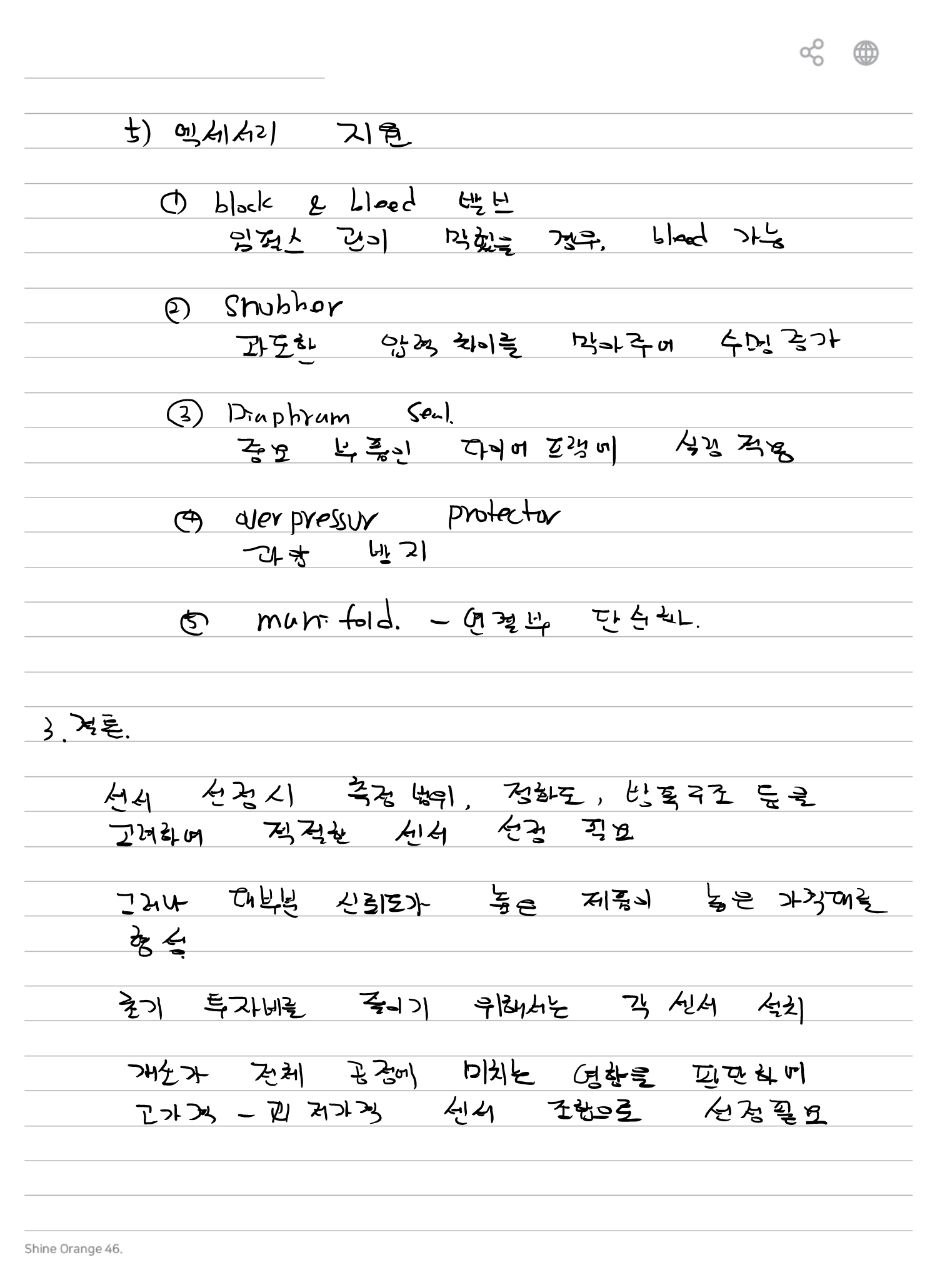 5) 엑세서리 지원
① block & bleed 밸브
임펄스 관이 막혔을 경우, bleed 가능
② Snubber
과도한 압력 차이를 막아주어 수명 증가
③ Diaphram seal.
중요 부품인 다이어프램에 실링 적용
④ over pressur protector
과압 방지
⑤ mani fold. - 연결부 단순화.
3. 결론.
센서 선정시 측정 범위, 정확도, 방폭구조 등을
고려하여 적절한 센서 선정 필요
그러나 대부분 신뢰도가 높은 제품이 높은 가격대를
형성
초기 투자비를 줄이기 위해서는 각 센서 설치
개소가 전체 공정에 미치는 영향을 판단하여
고가격 - 저가격 센서 조합으로 선정필요
Shine Orange 46.